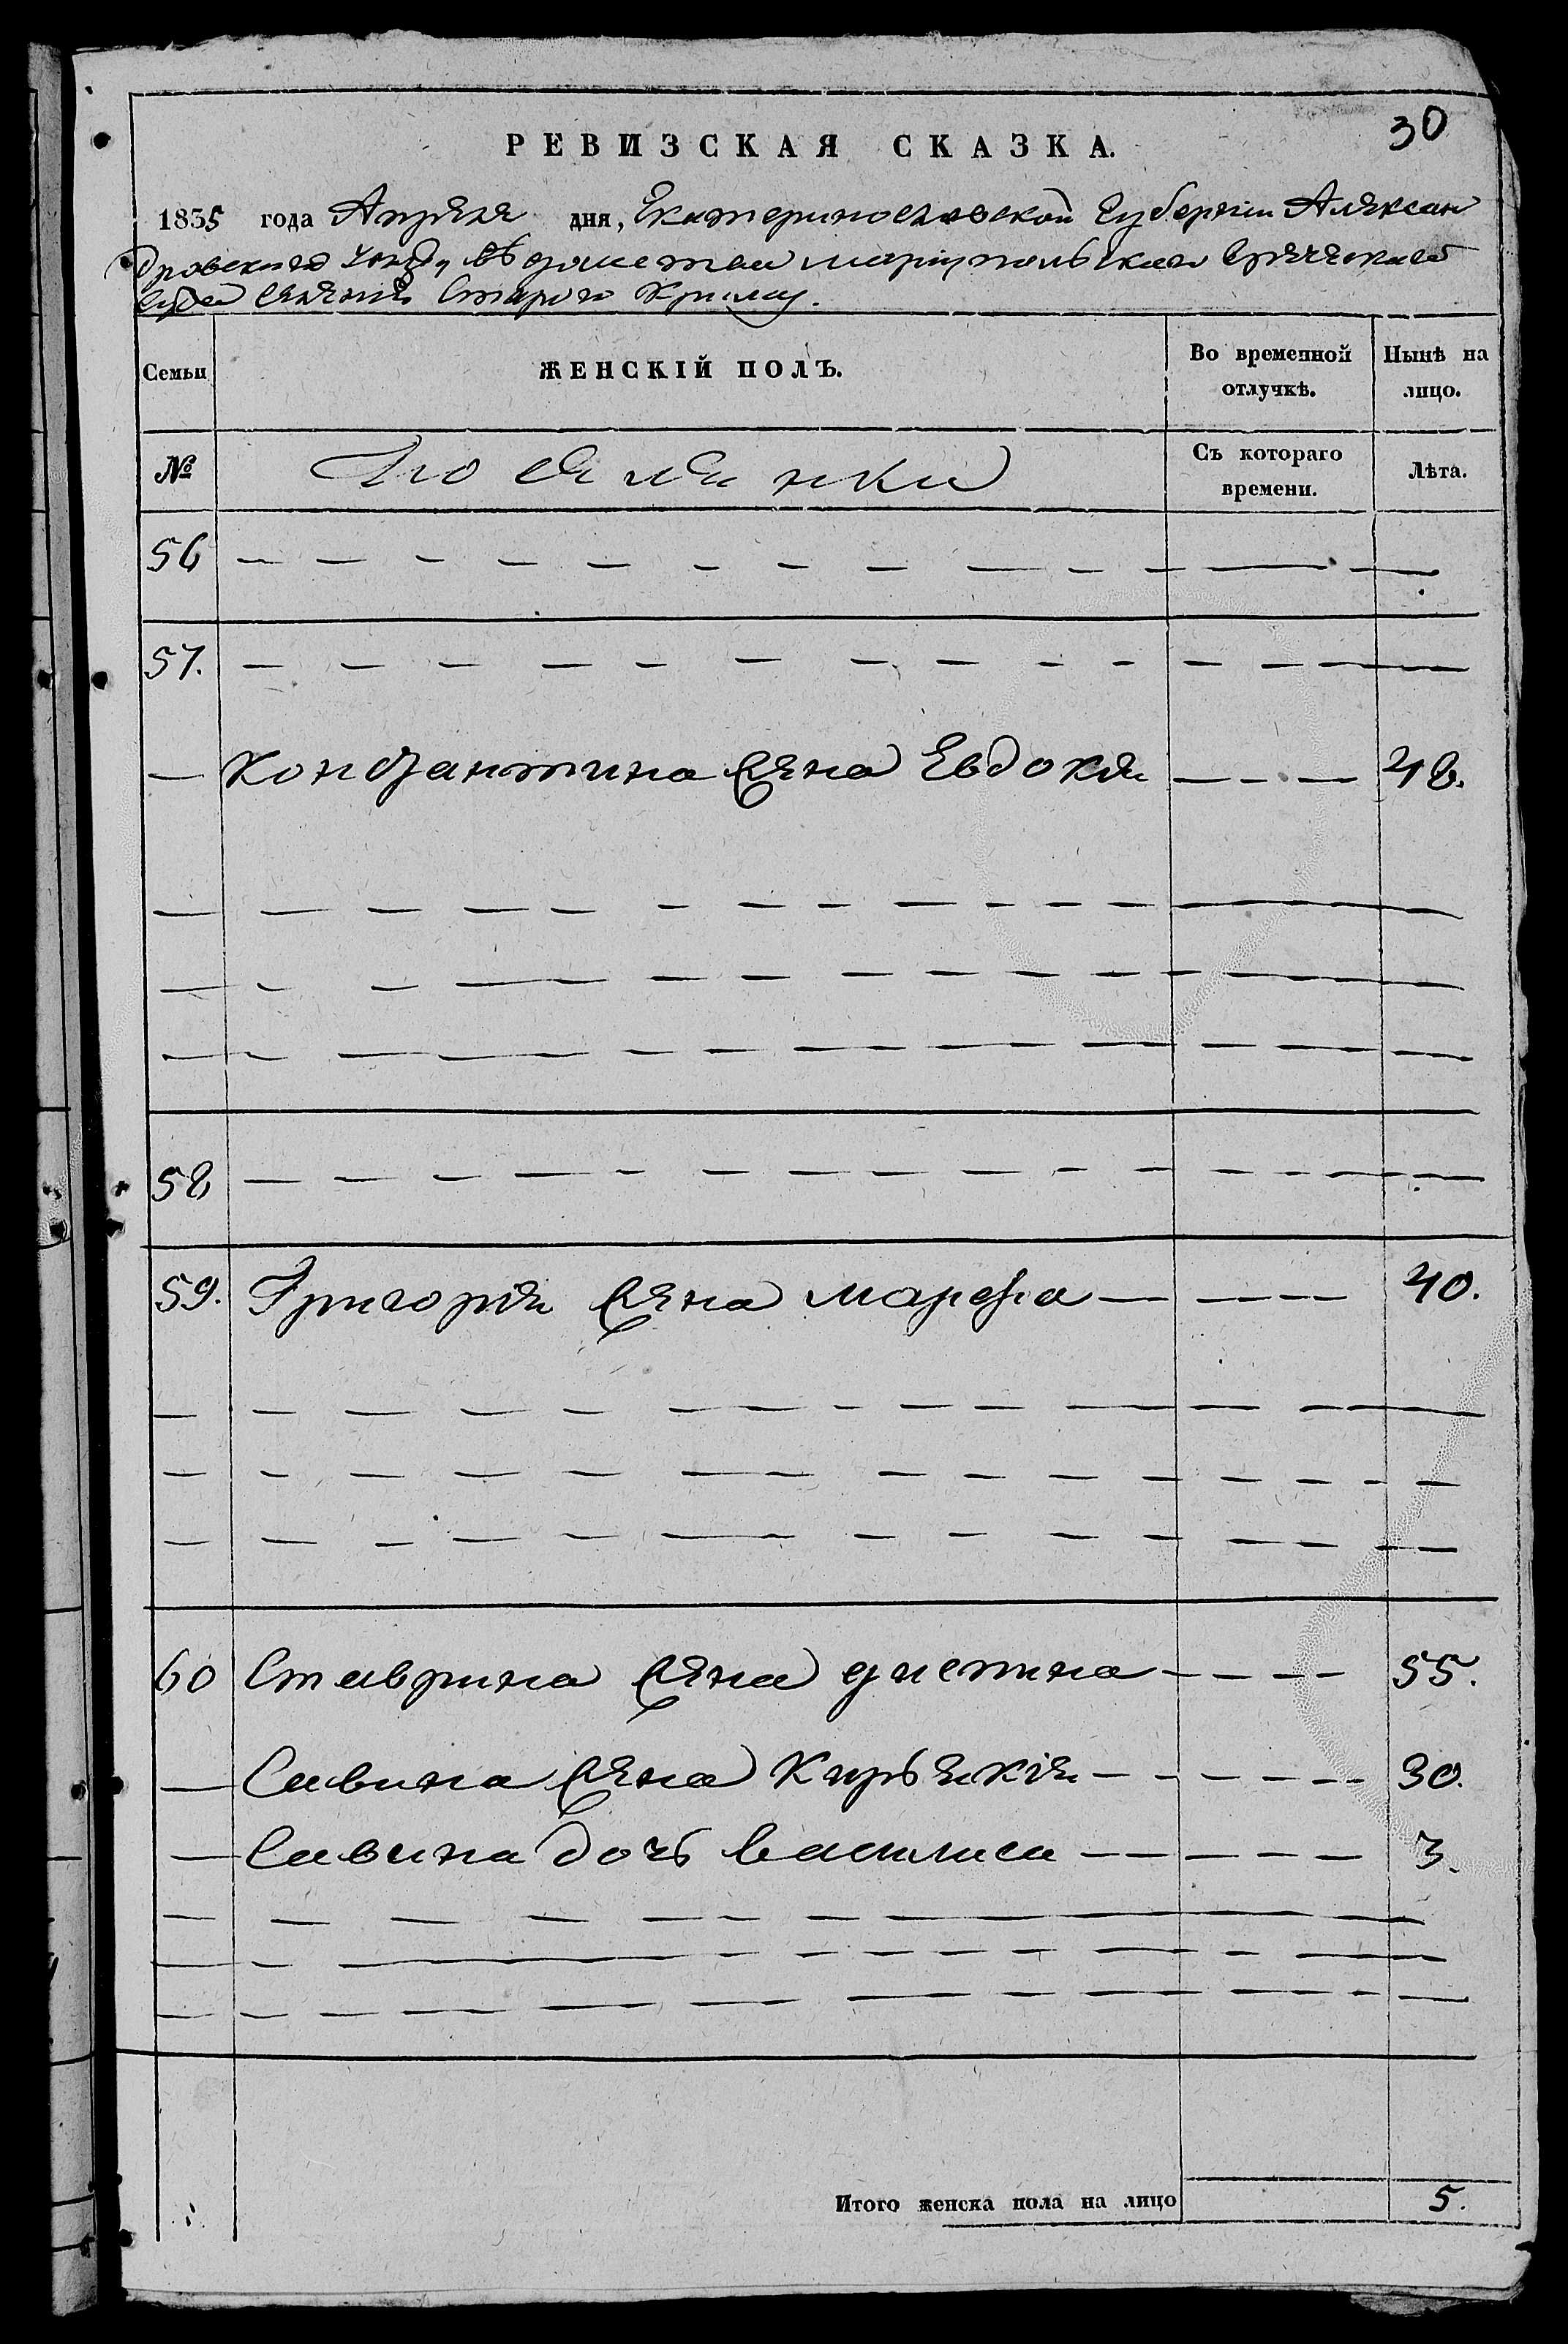 30
РЕВИЗСКАЯ СКАЗКА.
1835 года Апреля дня, Екатеринославской Губернии Алексан
дровского Уезда ведомства мариупольского Греческого
Суда селения Старого Крыма.
Семьи
ЖЕНСКІЙ ПОЛЪ.
Во временной отлучкѣ.
Нынѣ на лицо.
№
Поселянки
Съ котораго времени.
Лѣта.
56 — — — — — — — — — — — — —
57. — — — — — — — — — — — — —
— Константина жена Евдокия — — — 48.
58 — — — — — — — — — — — — —
59. Григория жена марфа — — — — 40.
60 Ставрина жена — — — — 55.
— Савина жена Кирьякия — — — — — 30.
— Савина дочь Василиса — — — — — 3.
Итого женска пола на лицо 5.